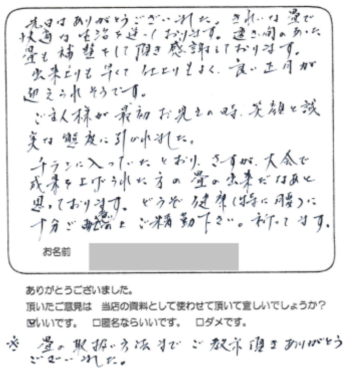 先日はありがとうございました。きれいな畳で
快適な生活を送っております。透き間のあった
畳も補整をして頂き感謝しております。
出来上りも早くて仕上りもよく、良い正月が
迎えられそうです。
ご主人様が最初お見えの時、笑顔と誠
実な態度に引かれました。
チラシに入っていたとおり、さすが、大会で
成果を上げられた方の畳の出来だなあと
思っております。どうぞ健康(特に腰)に
十分ご ご精勤下さい。祈ってます。
お名前
ありがとうございました。
頂いたご意見は 当店の資料として使わせて頂いて宜しいでしょうか?
☑いいです。 □匿名ならいいです。 □ダメです。
※ 畳の取扱い方法までご教示頂きありがとう
ございました。